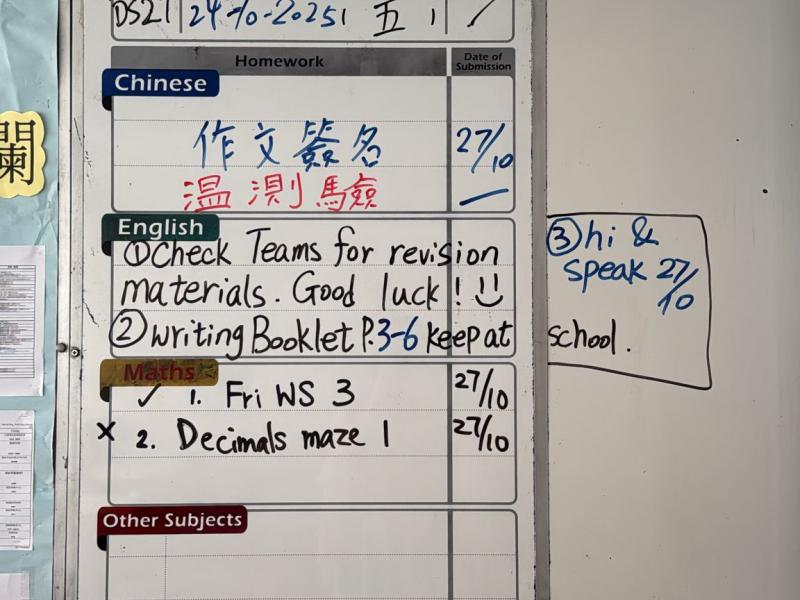 24-10-2025 五
Homework
Date of Submission
Chinese
作文簽名 27/10
温測驗 —
English
①Check Teams for revision
materials. Good luck! :)
②Writing Booklet P.3-6 keep at school.
③hi &
speak 27/10
Maths
✓ 1. Fri WS 3 27/10
× 2. Decimals maze 1 27/10
Other Subjects
闌